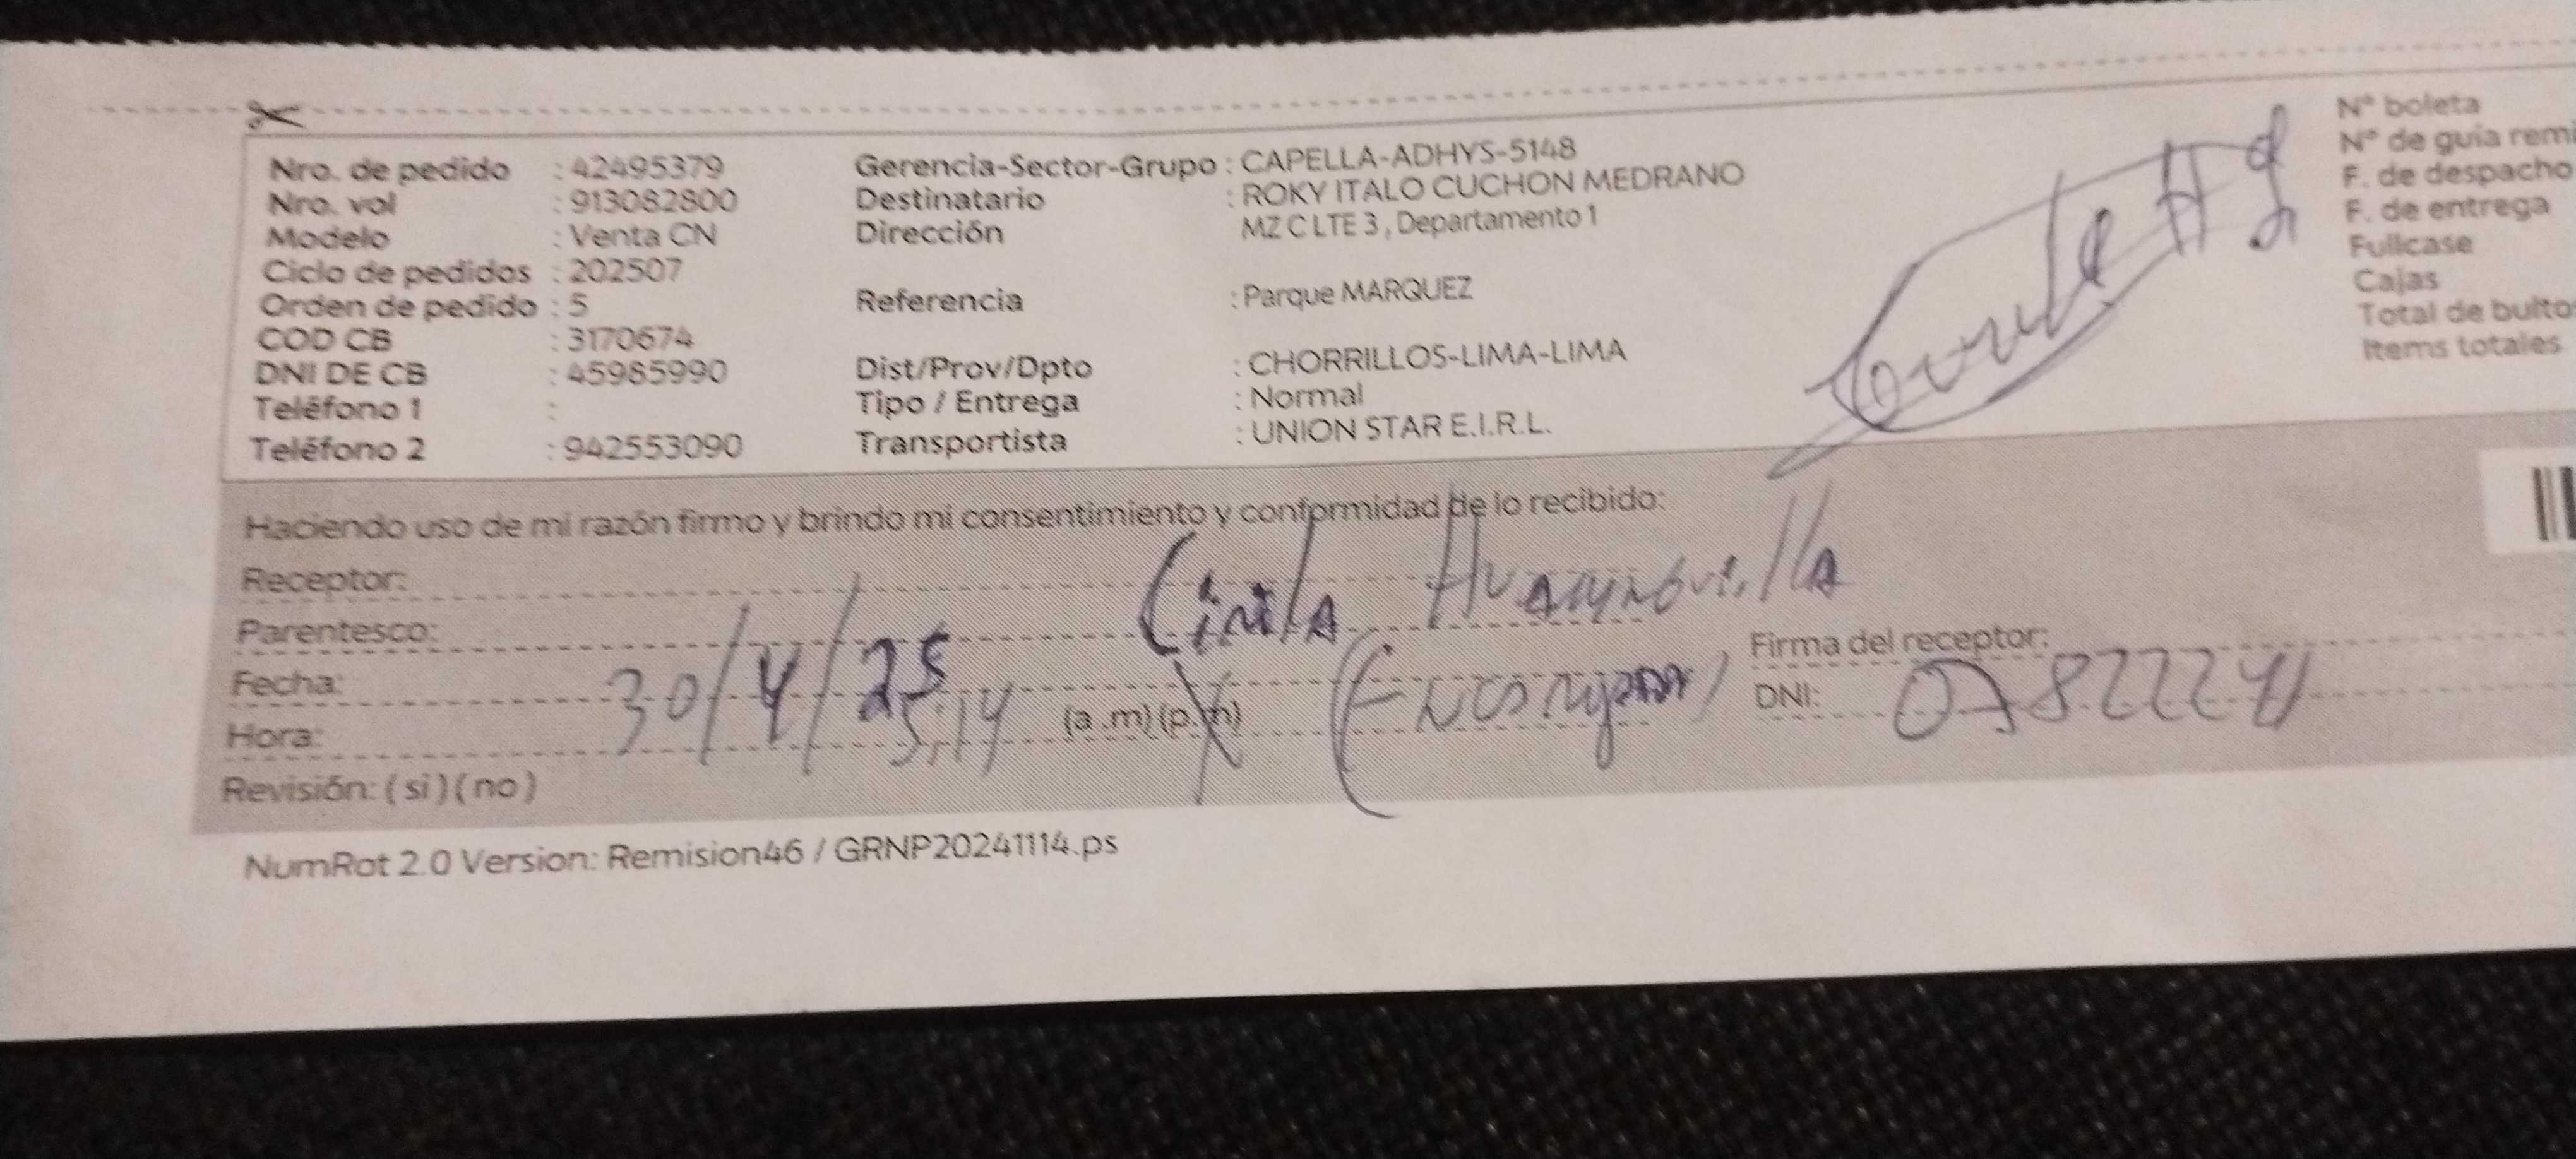 Nro. de pedido : 42495379
Nro. vol : 913082800
Modelo : Venta CN
Ciclo de pedidos : 202507
Orden de pedido : 5
COD CB : 3170674
DNI DE CB : 45985990
Teléfono 1 :
Teléfono 2 : 942553090
Gerencia-Sector-Grupo : CAPELLA-ADHYS-5148
Destinatario : ROKY ITALO CUCHON MEDRANO
Dirección MZ C LTE 3 , Departamento 1
Referencia : Parque MARQUEZ
Dist/Prov/Dpto : CHORRILLOS-LIMA-LIMA
Tipo / Entrega : Normal
Transportista : UNION STAR E.I.R.L.
N° boleta
N° de guía remi
F. de despacho
F. de entrega
Fullcase
Cajas
Total de bulto
Items totales
Haciendo uso de mi razón firmo y brindo mi consentimiento y conformidad de lo recibido:
Receptor:
Parentesco:
Fecha: 30/4/25
Hora: 5:14 (a .m) (p.m)
Revisión: ( si ) ( no )
Firma del receptor:
DNI:
NumRot 2.0 Version: Remision46 / GRNP20241114.ps